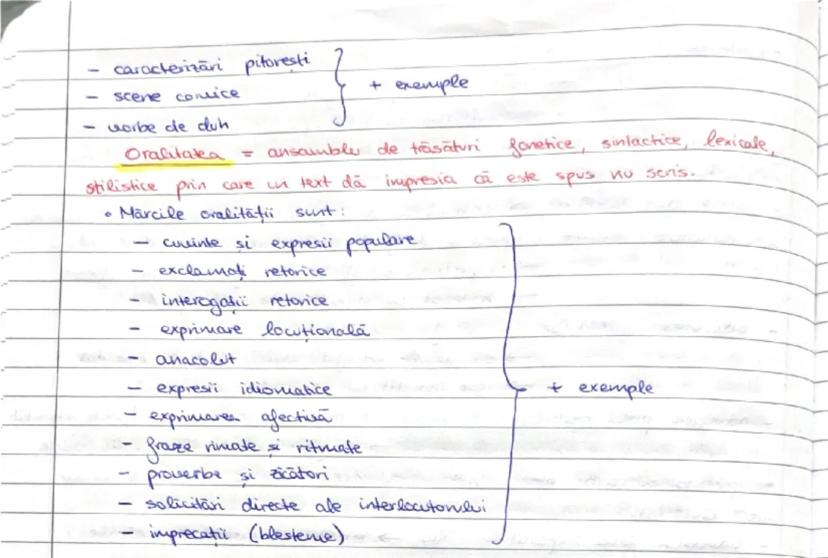 - caracterizări pitorești
- scene comice + exemple
- vorbe de duh
Oralitatea = ansamblu de trăsături fonetice, sintactice, lexicale,
stilistice prin care un text dă impresia că este spus nu scris.
• Mărcile oralității sunt:
- cuvinte și expresii populare
- exclamații retorice
- interogații retorice
- exprimare locuțională
- anacolut
- expresii idiomatice + exemple
- exprimarea afectivă
- fraze rimate și ritmate
- proverbe și zicători
- solicitări directe ale interlocutorului
- imprecații (blesteme)